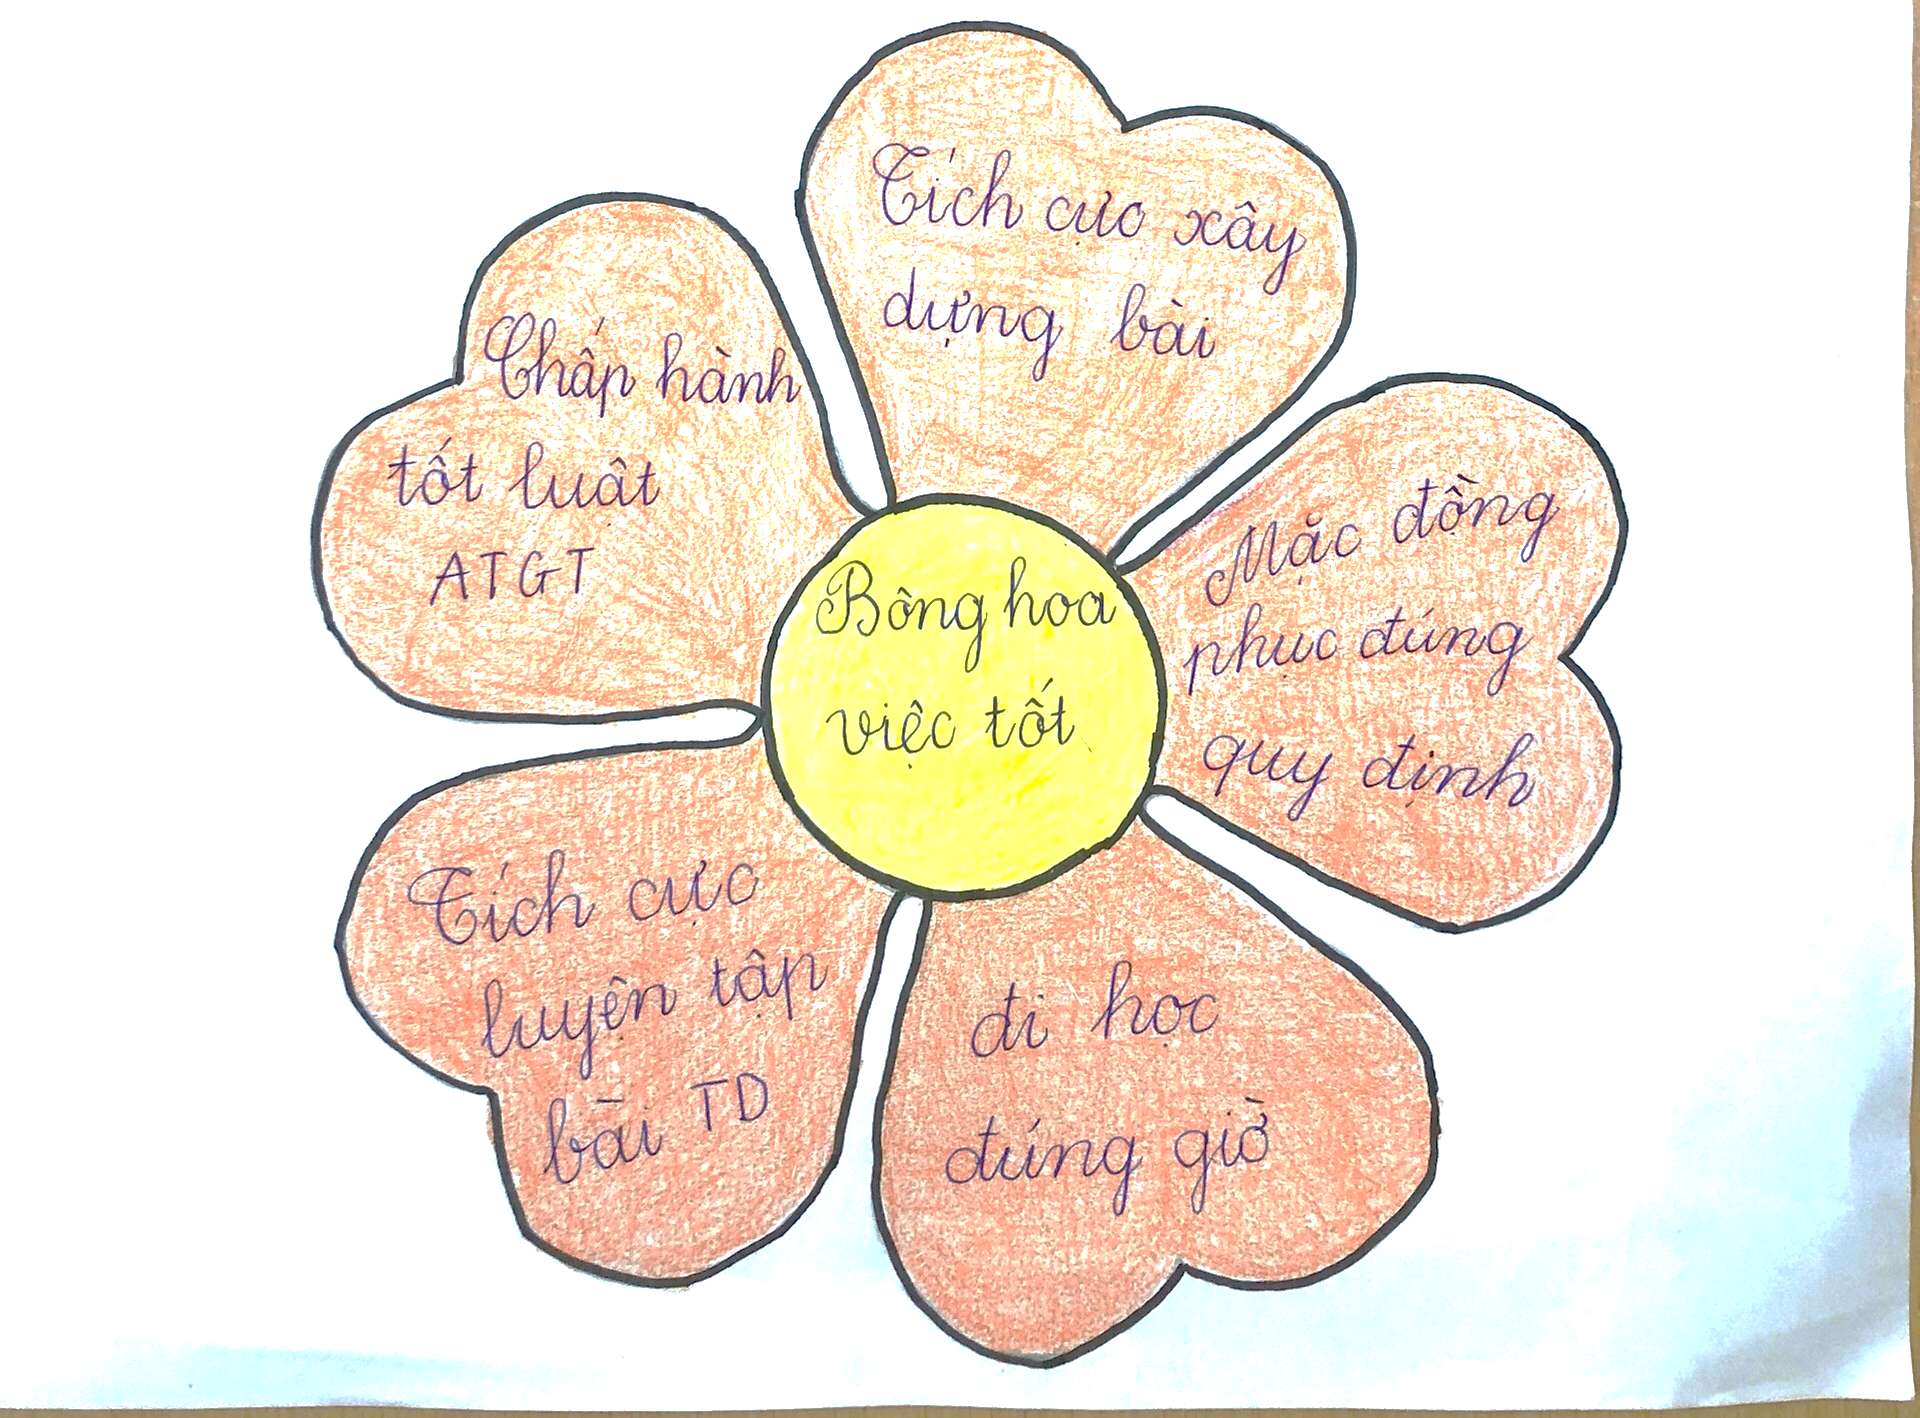 Bông hoa
việc tốt
Tích cực xây
dựng bài
Mặc đồng
phục đúng
quy định
đi học
đúng giờ
Tích cực
luyện tập
bài TD
Chấp hành
tốt luật
ATGT